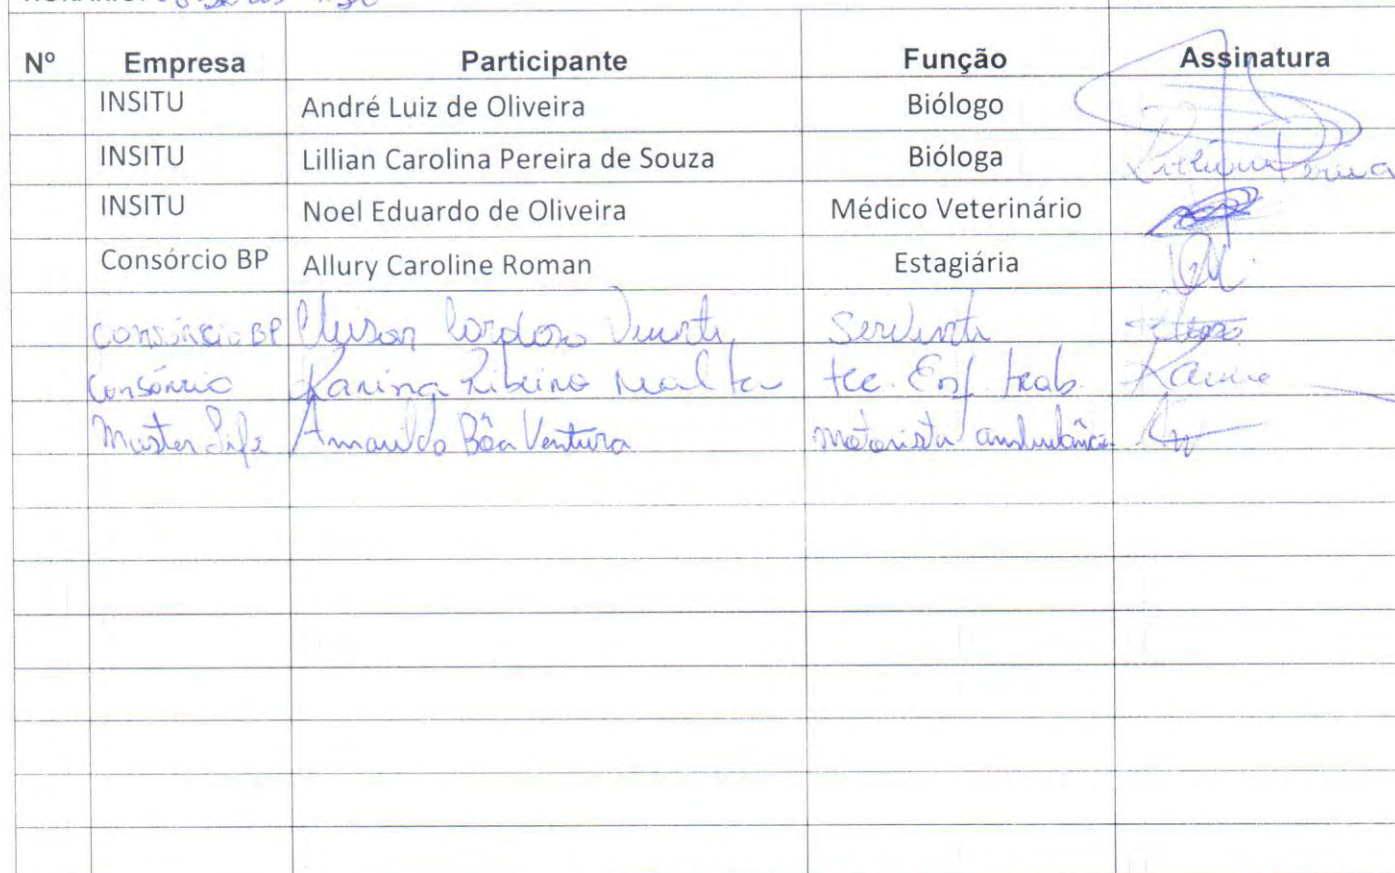 Nº Empresa Participante Função Assinatura
INSITU André Luiz de Oliveira Biólogo
INSITU Lillian Carolina Pereira de Souza Bióloga
INSITU Noel Eduardo de Oliveira Médico Veterinário
Consórcio BP Allury Caroline Roman Estagiária
Consórcio BP Cardoso Servente
Consórcio Karina Ribeiro tec. Enf. trab.
Master Life Boa Ventura motorista ambulância